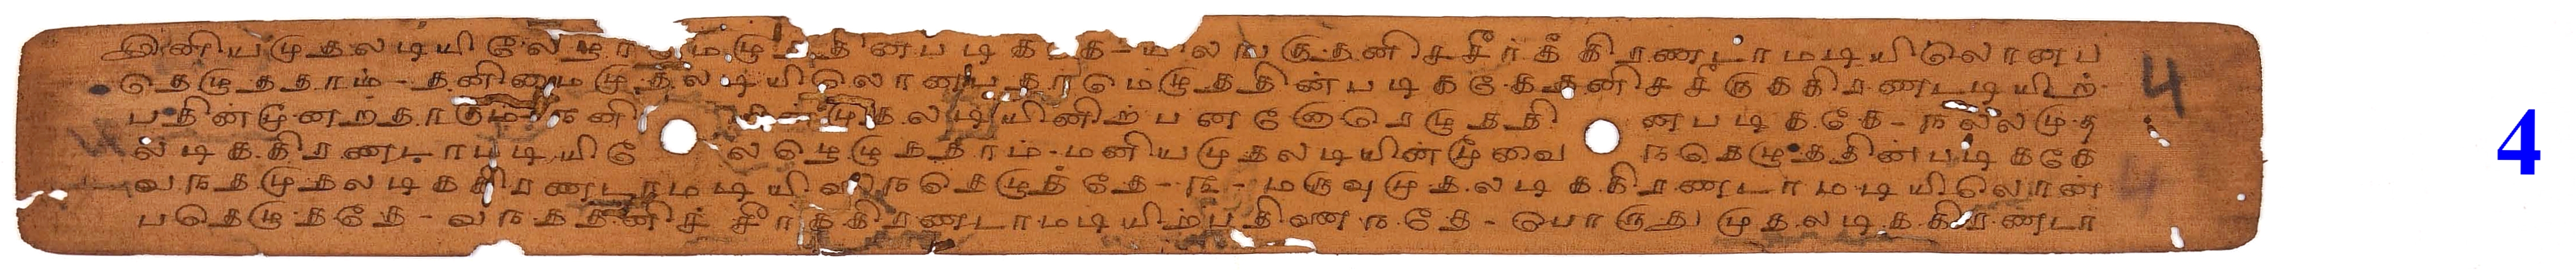 இனியமுதலடியிலேழா மெழுத தினபடிக கே-யலஙகுதனிசசீர்ககிரணடாமடியிலொனப
தெழுததாம்-தனினைமுதலடியிலொனபதாமெழுததின்படிககேதனிசசீருககிரணடடியிற்
பதின்மூனறதாகும்-நனி முதலடியினிற்பனனோரெழுததி னபடிககே-நலலமுத
லடிககிரணடாமடியிலே லெழுழுததாம்-மனியமுதலடியின்மூவை நதெழுததின்படிககே
வநதமுதலடிககிரணடாமடியிலைநதெழுததே-ந-மருவுமுதலடிககிரணடாமடியிலொன்
பதெழுததே-வநததனிச் சீர்ககிரணடாமடியிற்பதினைநதே-பொருதுமுதலடிககிரண்டா
4
4